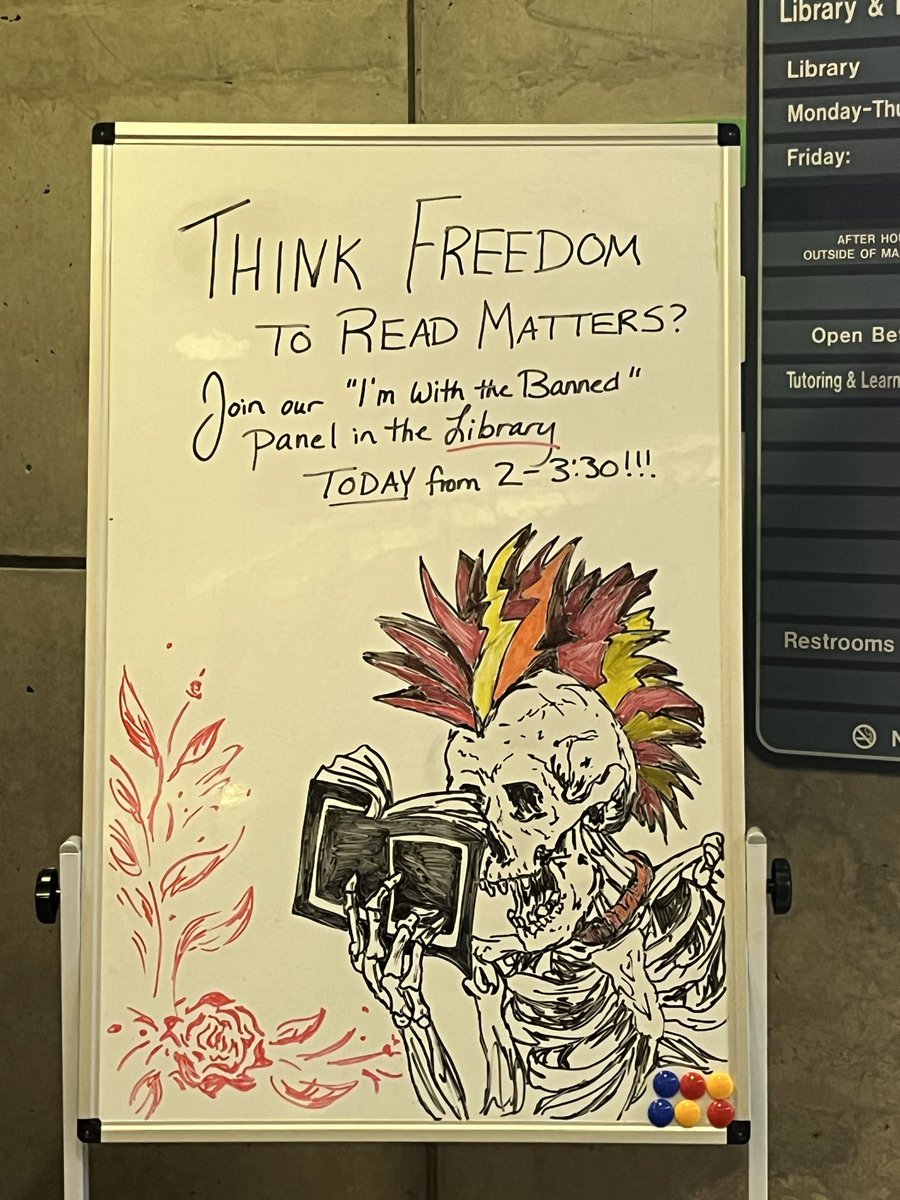 THINK FREEDOM
TO READ MATTERS?
Join our "I'm With the Banned"
panel in the Library
TODAY from 2-3:30!!!
Library &
Library
Monday-Thu
Friday:
AFTER HOU
OUTSIDE OF MA
Open Be
Tutoring & Learn
Restrooms